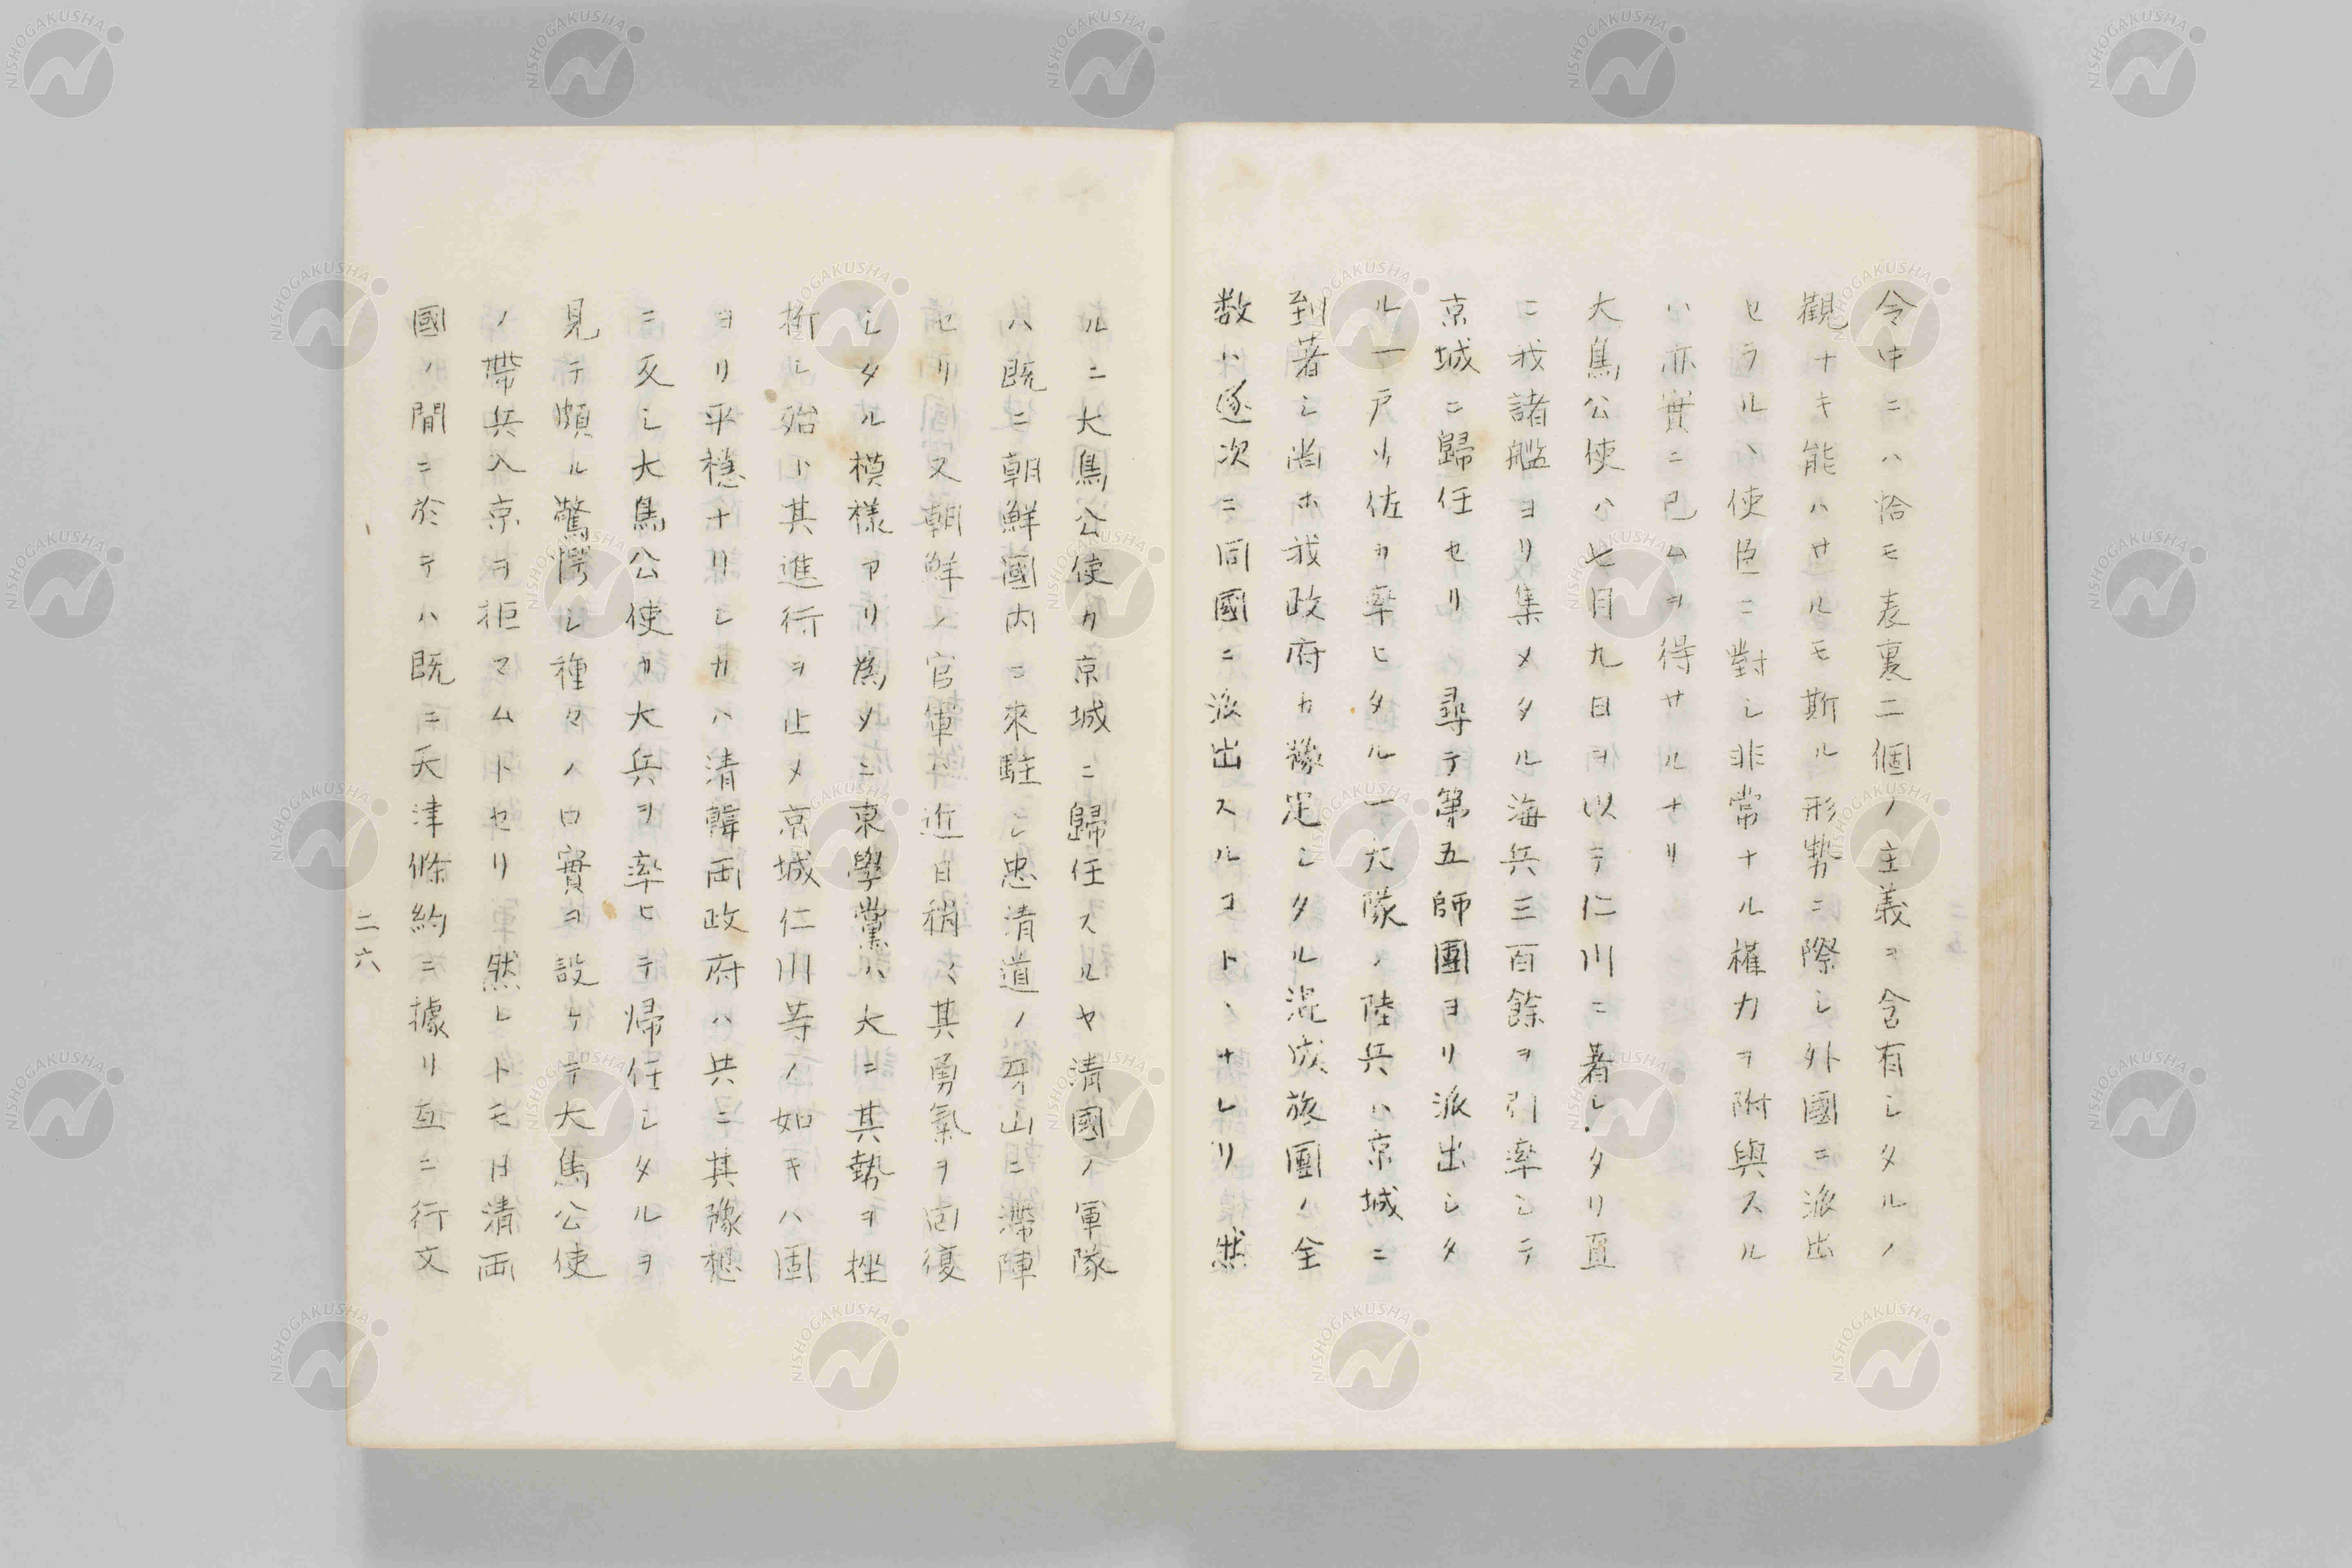 令中ニハ恰モ表裏二個ノ主義ヲ含有シタルノ
觀ナキ能ハサルモ斯ル形勢ニ際シ外國ニ派出
セラルヽ使臣ニ對シ非常ナル權力ヲ附與スル
ハ亦實ニ已ムヲ得サルナリ
大鳥公使ハ七月九日ヲ以テ仁川ニ着シタリ直
ニ我諸艦ヨリ集メタル海兵三百餘ヲ引率シテ
京城ニ歸任セリ尋テ第五師團ヨリ派出シタ
ル一戸少佐カ率ヒタル一大隊ノ陸兵ハ京城ニ
到著シ尚ホ我政府カ豫定シタル混成旅團ノ全
数ハ逐次ニ同國ニ派出スルコトヽナレリ然
ルニ大鳥公使カ京城ニ歸任スルヤ清國ノ軍隊
ハ既ニ朝鮮國内ニ來駐シ忠清道ノ牙山ニ滯陣
セリ又朝鮮ノ官軍ハ近日稍〻其勇氣ヲ囘復
シタル模様アリ為メニ東學黨ハ大ニ其勢ヲ挫
折シ殆ト其進行ヲ止メ京城仁川等ノ如キハ固
ヨリ平穏ナリシカハ清韓両政府ハ共ニ其豫想
ニ反シ大鳥公使カ大兵ヲ率ヒテ帰任シタルヲ
見テ頗ル驚愕シ種々ノ口實ヲ設ケテ大鳥公使
ノ帶兵入京ヲ拒マムトセリ然レトモ日清両
國ノ間ニ於テハ既ニ天津條約ニ據リ互ニ行文
二六
NISHOGAKUSHA